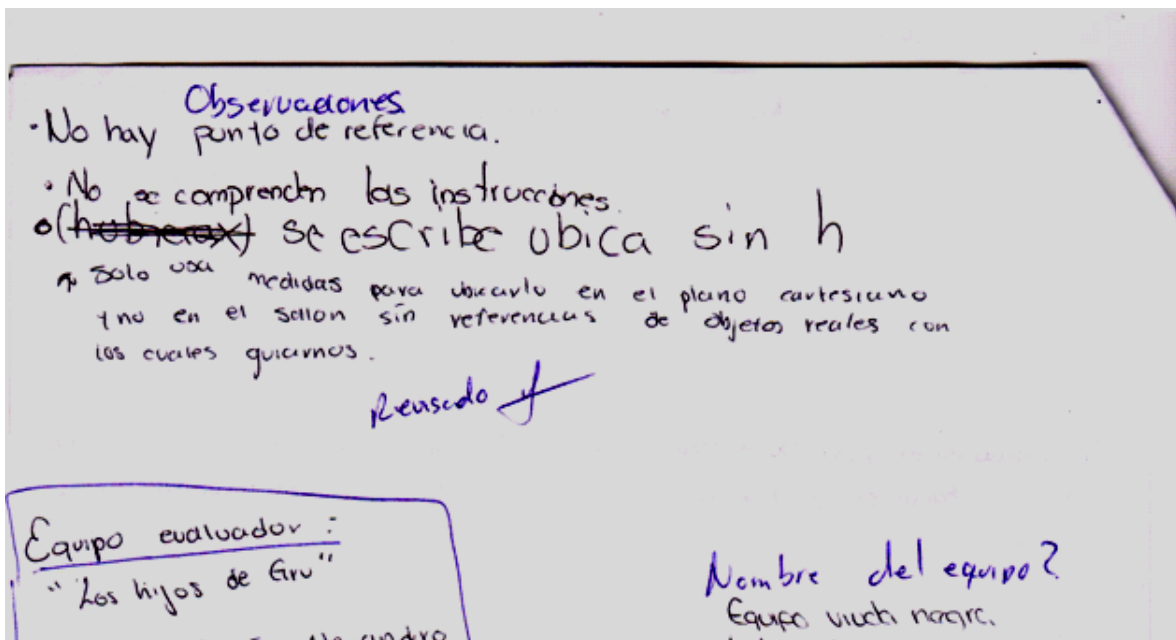 Observaciones
·No hay punto de referencia.
· No se comprenden las instrucciones.
se escribe ubica sin h
Solo usa medidas para ubicarlo en el plano cartesiano
y no en el salon sin referencias de objetos reales con
los cuales guiarnos.
Revisado
Equipo evaluador :
"Los hijos de Gru"
Nombre del equipo?
Equipo viuda negra.